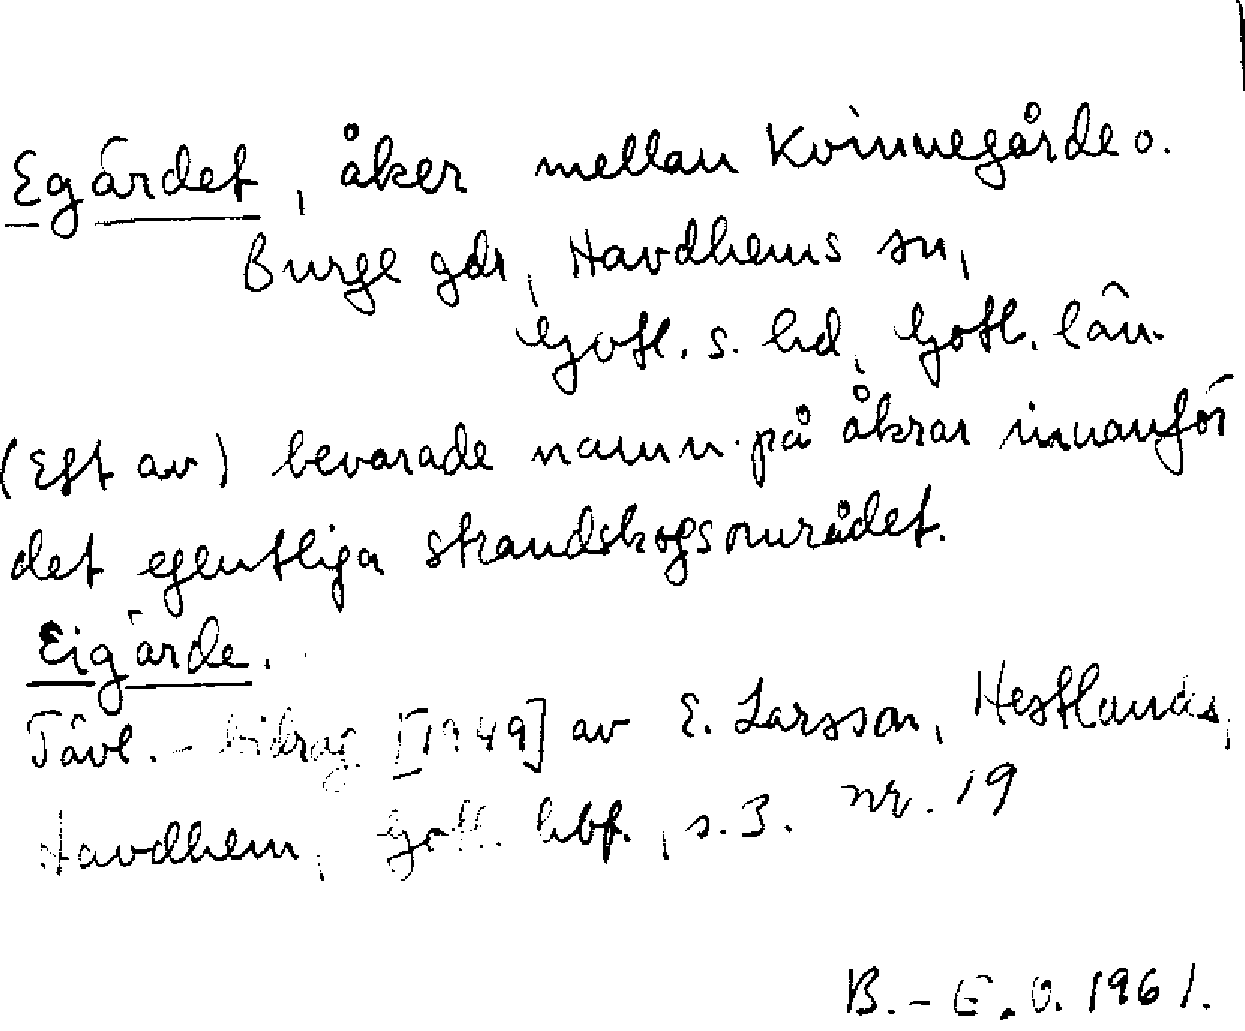 Egärdet, åker mellan Kvinnegårde o.
Burge gdr, Havdhems sn,
Gotl. s. hd, Gotl. län.
(Eft av) bevarade namn på åkrar innanför
det egentliga strandskogsområdet.
Eigärde.
Tävl.-bidrag [1949] av E. Larsson, Hestlands,
Havdhem, Gotl. hbf., s. 3. nr. 19
B.-E. O. 1961.